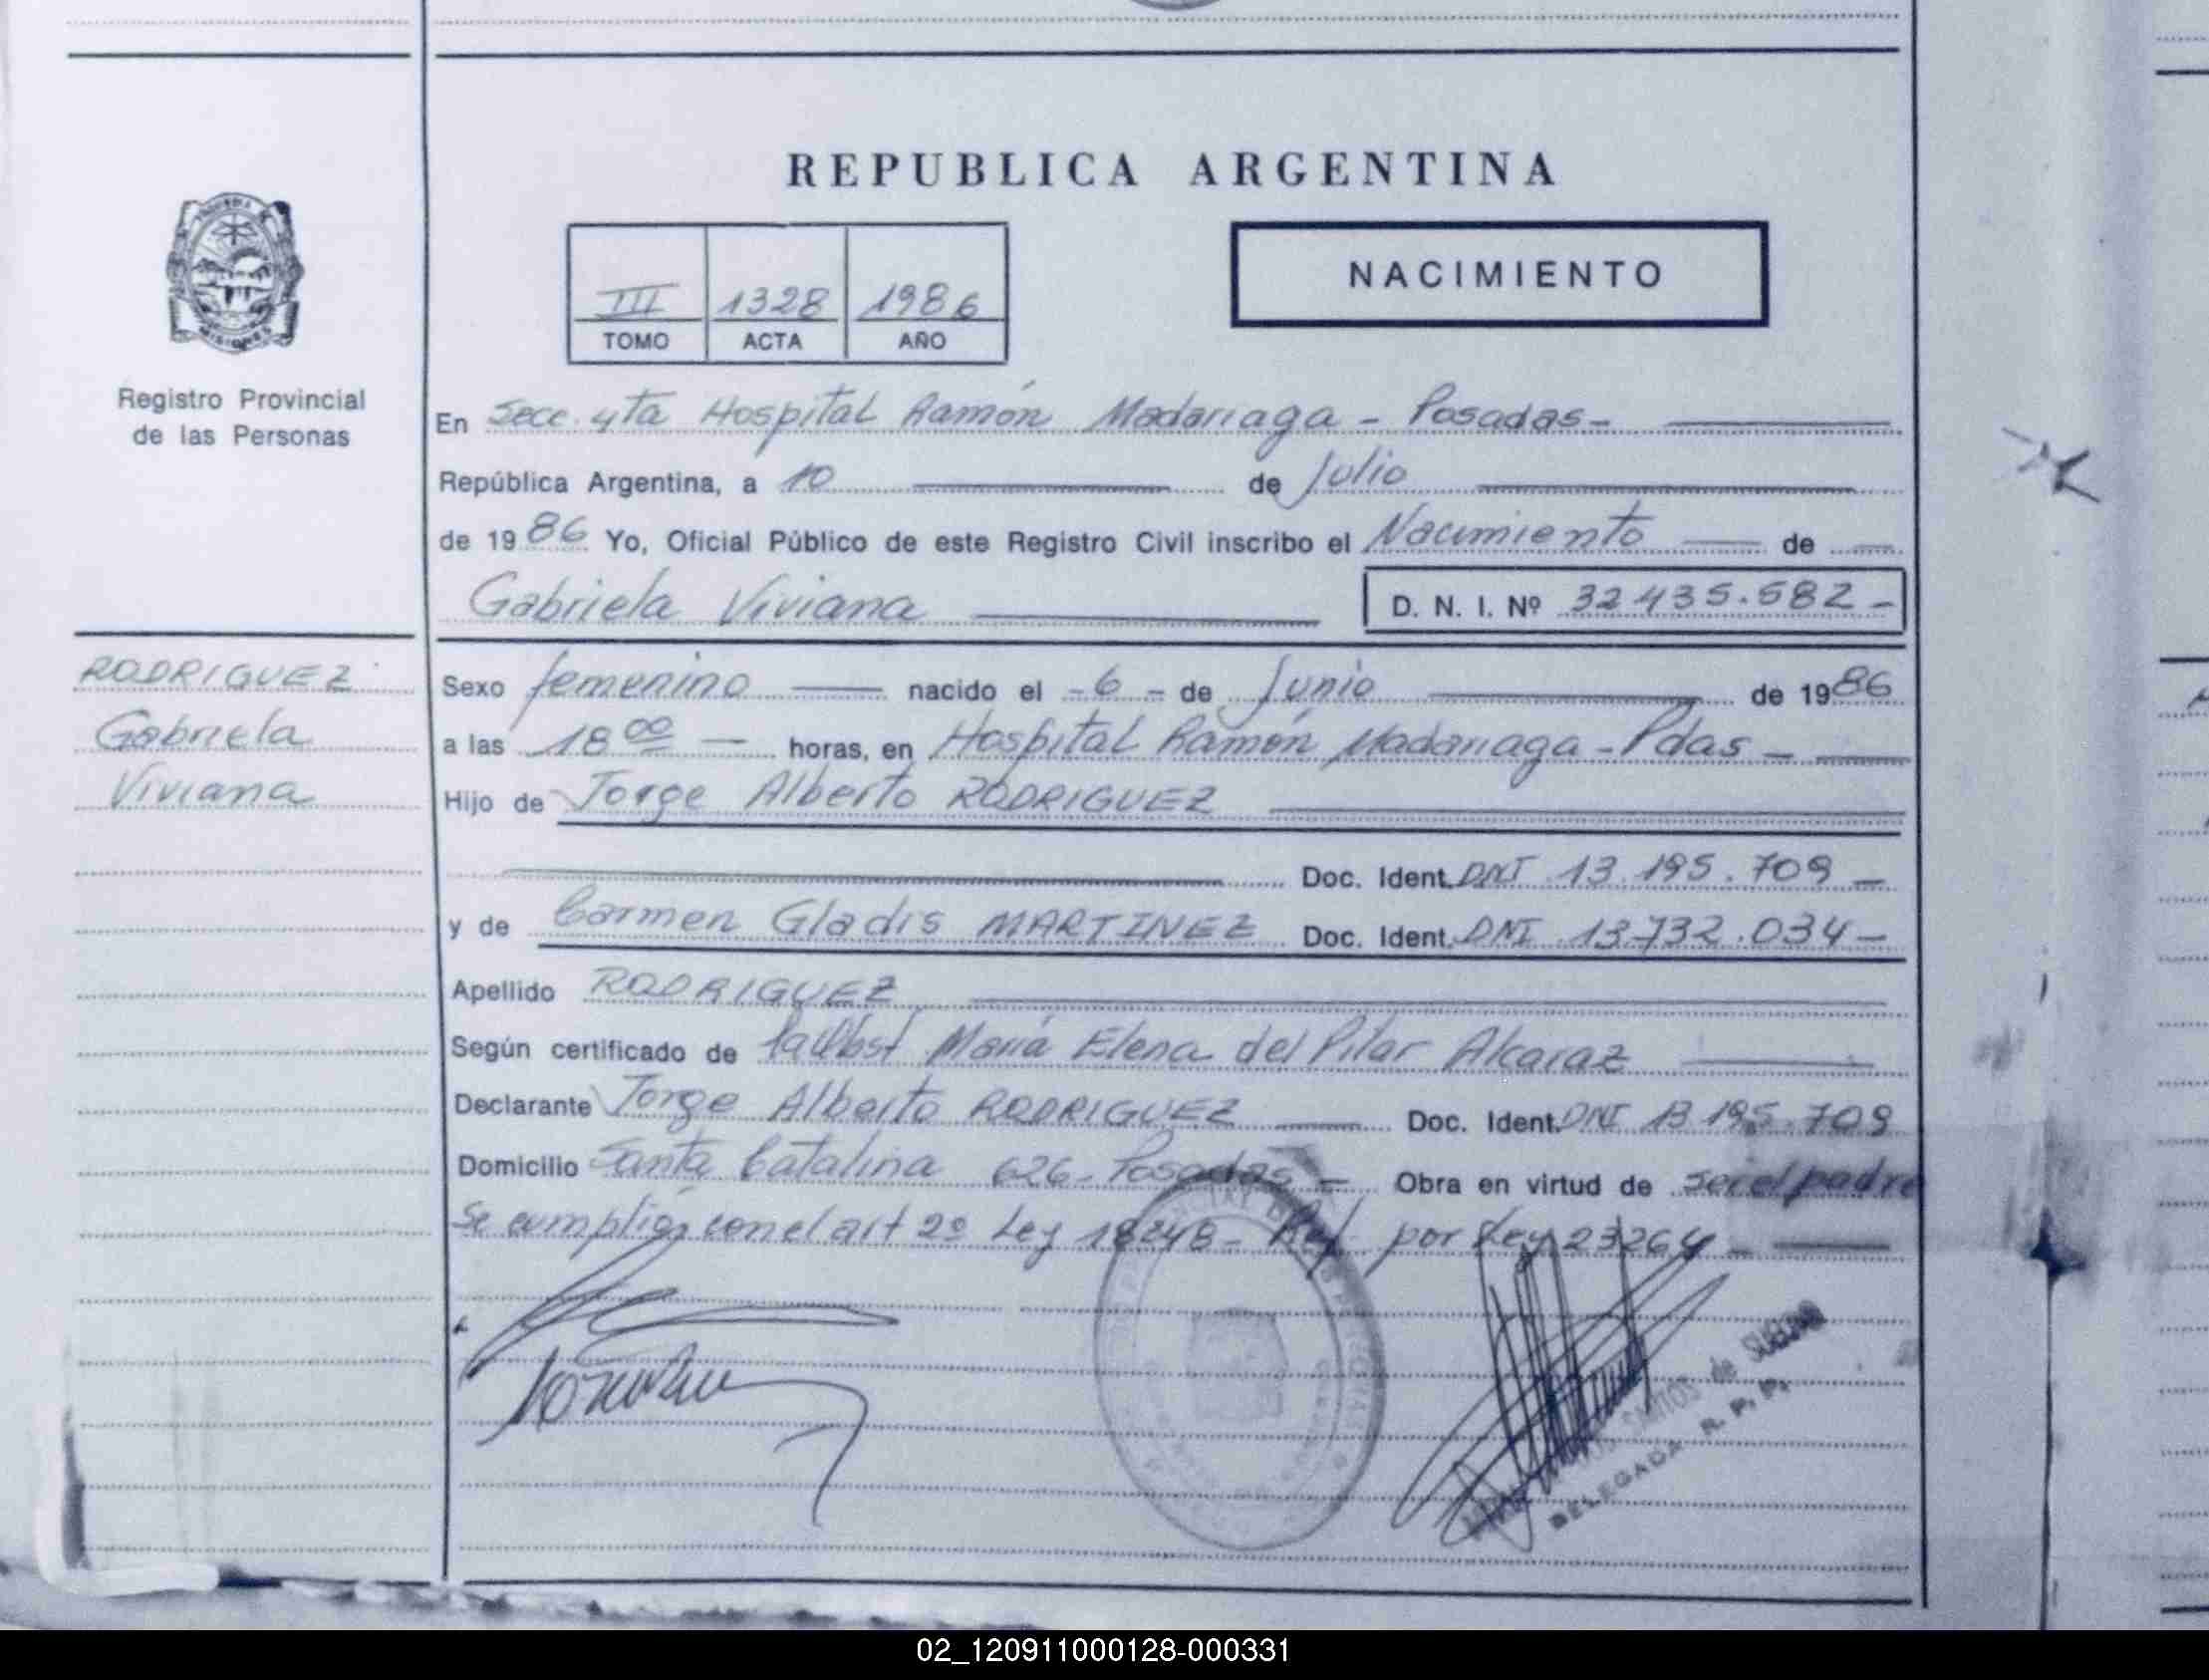 REPUBLICA ARGENTINA
NACIMIENTO
III 1328 1986
TOMO ACTA AÑO
Registro Provincial
de las Personas
En Secc. 4ta Hospital Ramón Madariaga - Posadas -
República Argentina, a 10 de Julio
de 1986 Yo, Oficial Público de este Registro Civil inscribo el Nacimiento de
Gabriela Viviana D. N. I. Nº 32435.582 -
RODRIGUEZ
Gabriela
Viviana
Sexo femenino nacido el - 6 - de Junio de 1986
a las 18 00 horas, en Hospital Ramón Madariaga - Pdas -
Hijo de Jorge Alberto RODRIGUEZ
Doc. Ident. DNI 13.195.709 -
y de Carmen Gladis MARTINEZ Doc. Ident. DNI 13.732.034 -
Apellido RODRIGUEZ
Según certificado de María Elena del Pilar Alcaraz
Declarante Jorge Alberto RODRIGUEZ Doc. Ident. DNI 13.195.709
Domicilio Santa Catalina 626 - Posadas - Obra en virtud de ser el padre
Se cumplió con el art 2º Ley 18248 - Ref por Ley 23264 -
SANTOS de
DELEGADA R. P. P.
02_120911000128-000331